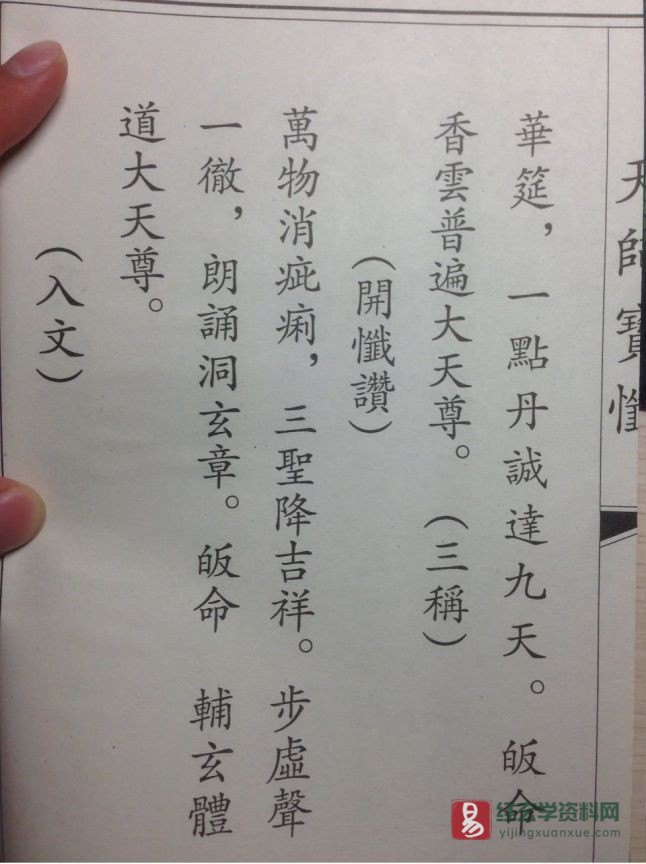 天師寶懺
華筵，一點丹誠達九天。皈命
香雲普遍大天尊。（三稱）
（開懺讚）
萬物消疵痢，三聖降吉祥。步虛聲
一徹，朗誦洞玄章。皈命　輔玄體
道大天尊。
（入文）
yijingxuanxue.com